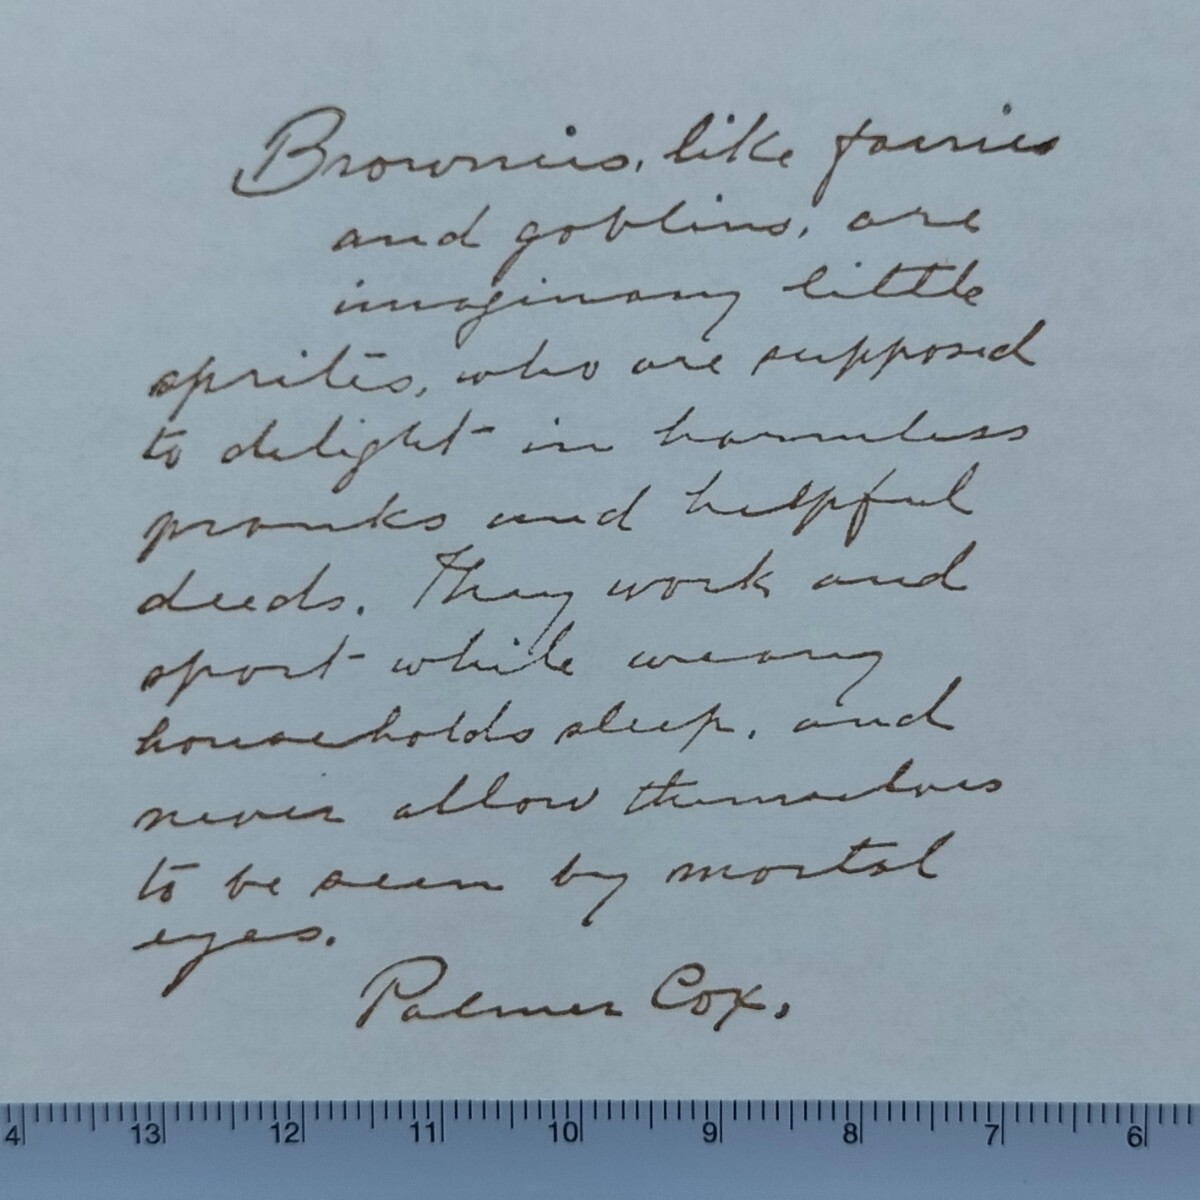 Brownies, like fairies
and goblins, are
imaginary little
sprites, who are supposed
to delight in harmless
pranks and helpful
deeds. They work and
sport while weary
households sleep, and
never allow themselves
to be seen by mortal
eyes.
Palmer Cox.
4 13 12 11 10 9 8 7 6